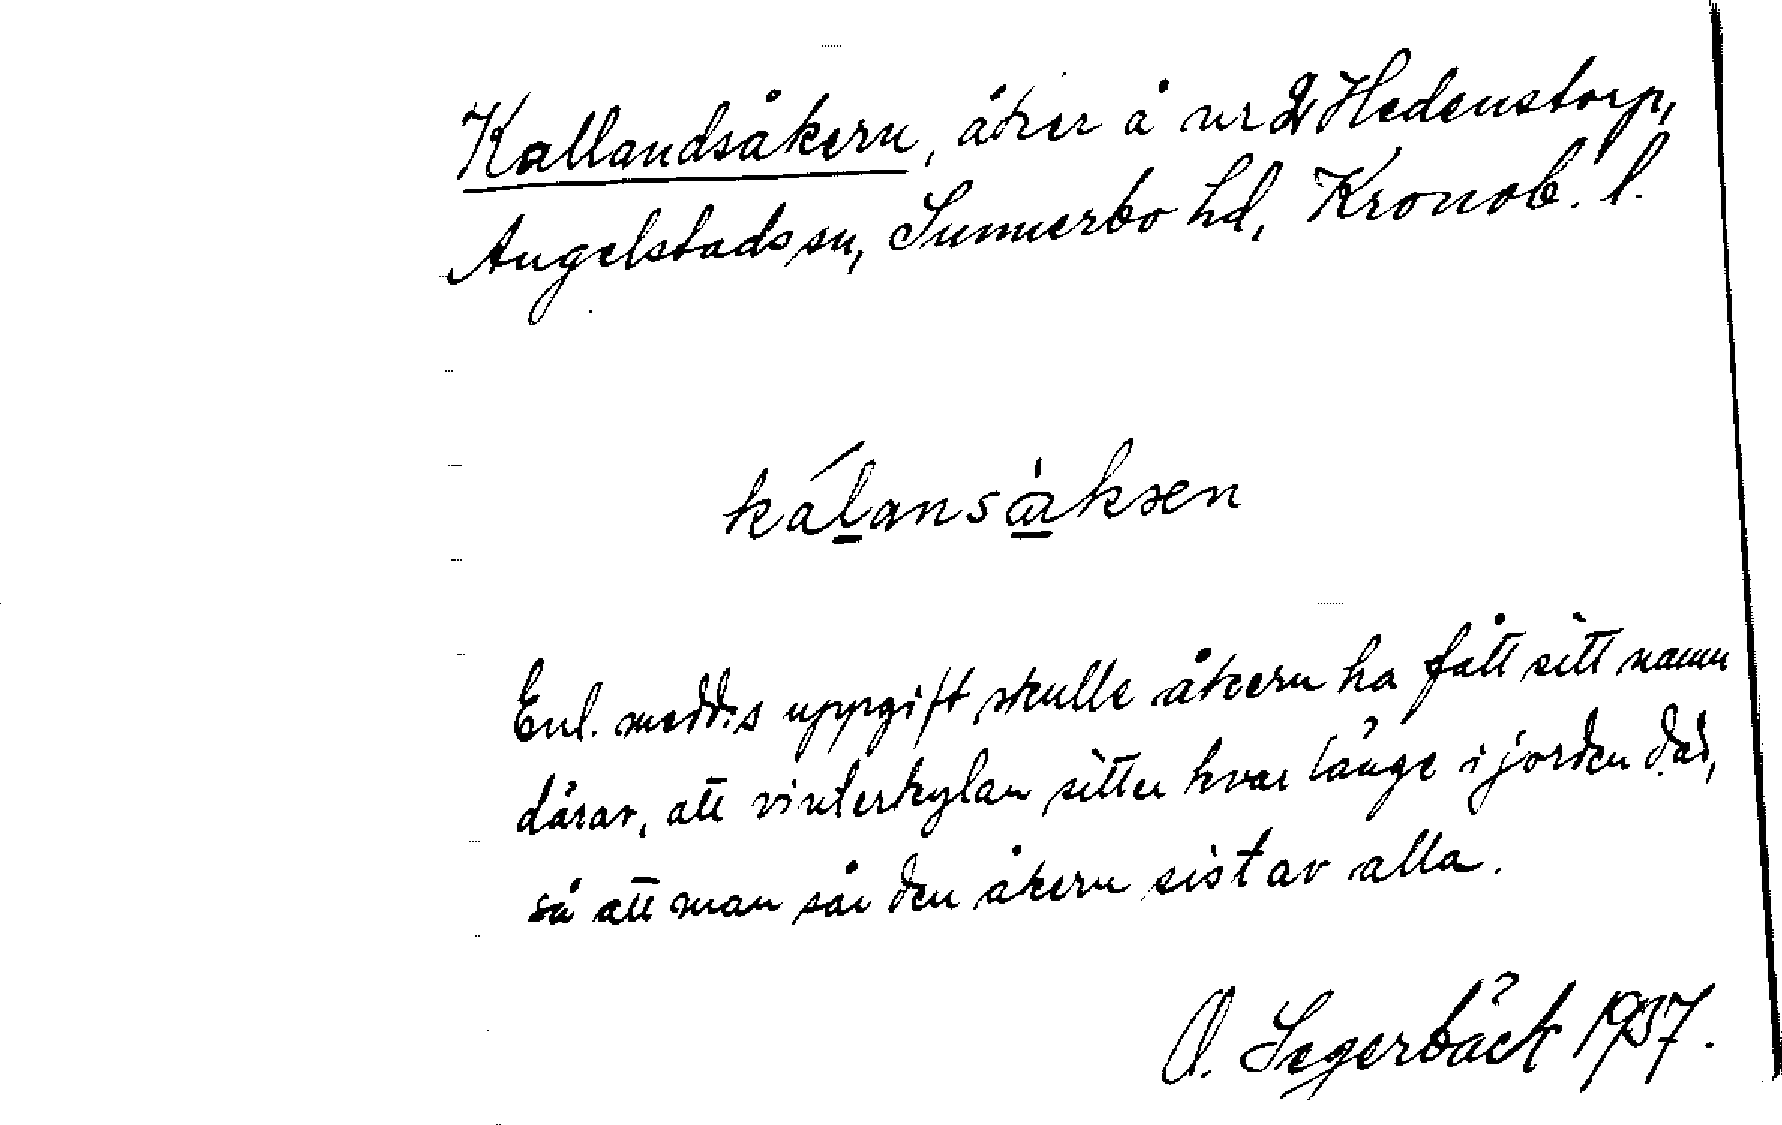 Kallandsåkern, åker å nr 2 Hedenstorp,
Angelstads sn, Sunnerbo hd, Kronob. l.
kálansàksen
Enl. medd:s uppgift skulle åkern ha fått sitt namn
därav, att vinterkylan sitter kvar länge i jorden där,
så att man sår den åkern sist av alla.
O. Segerbäck 1937.